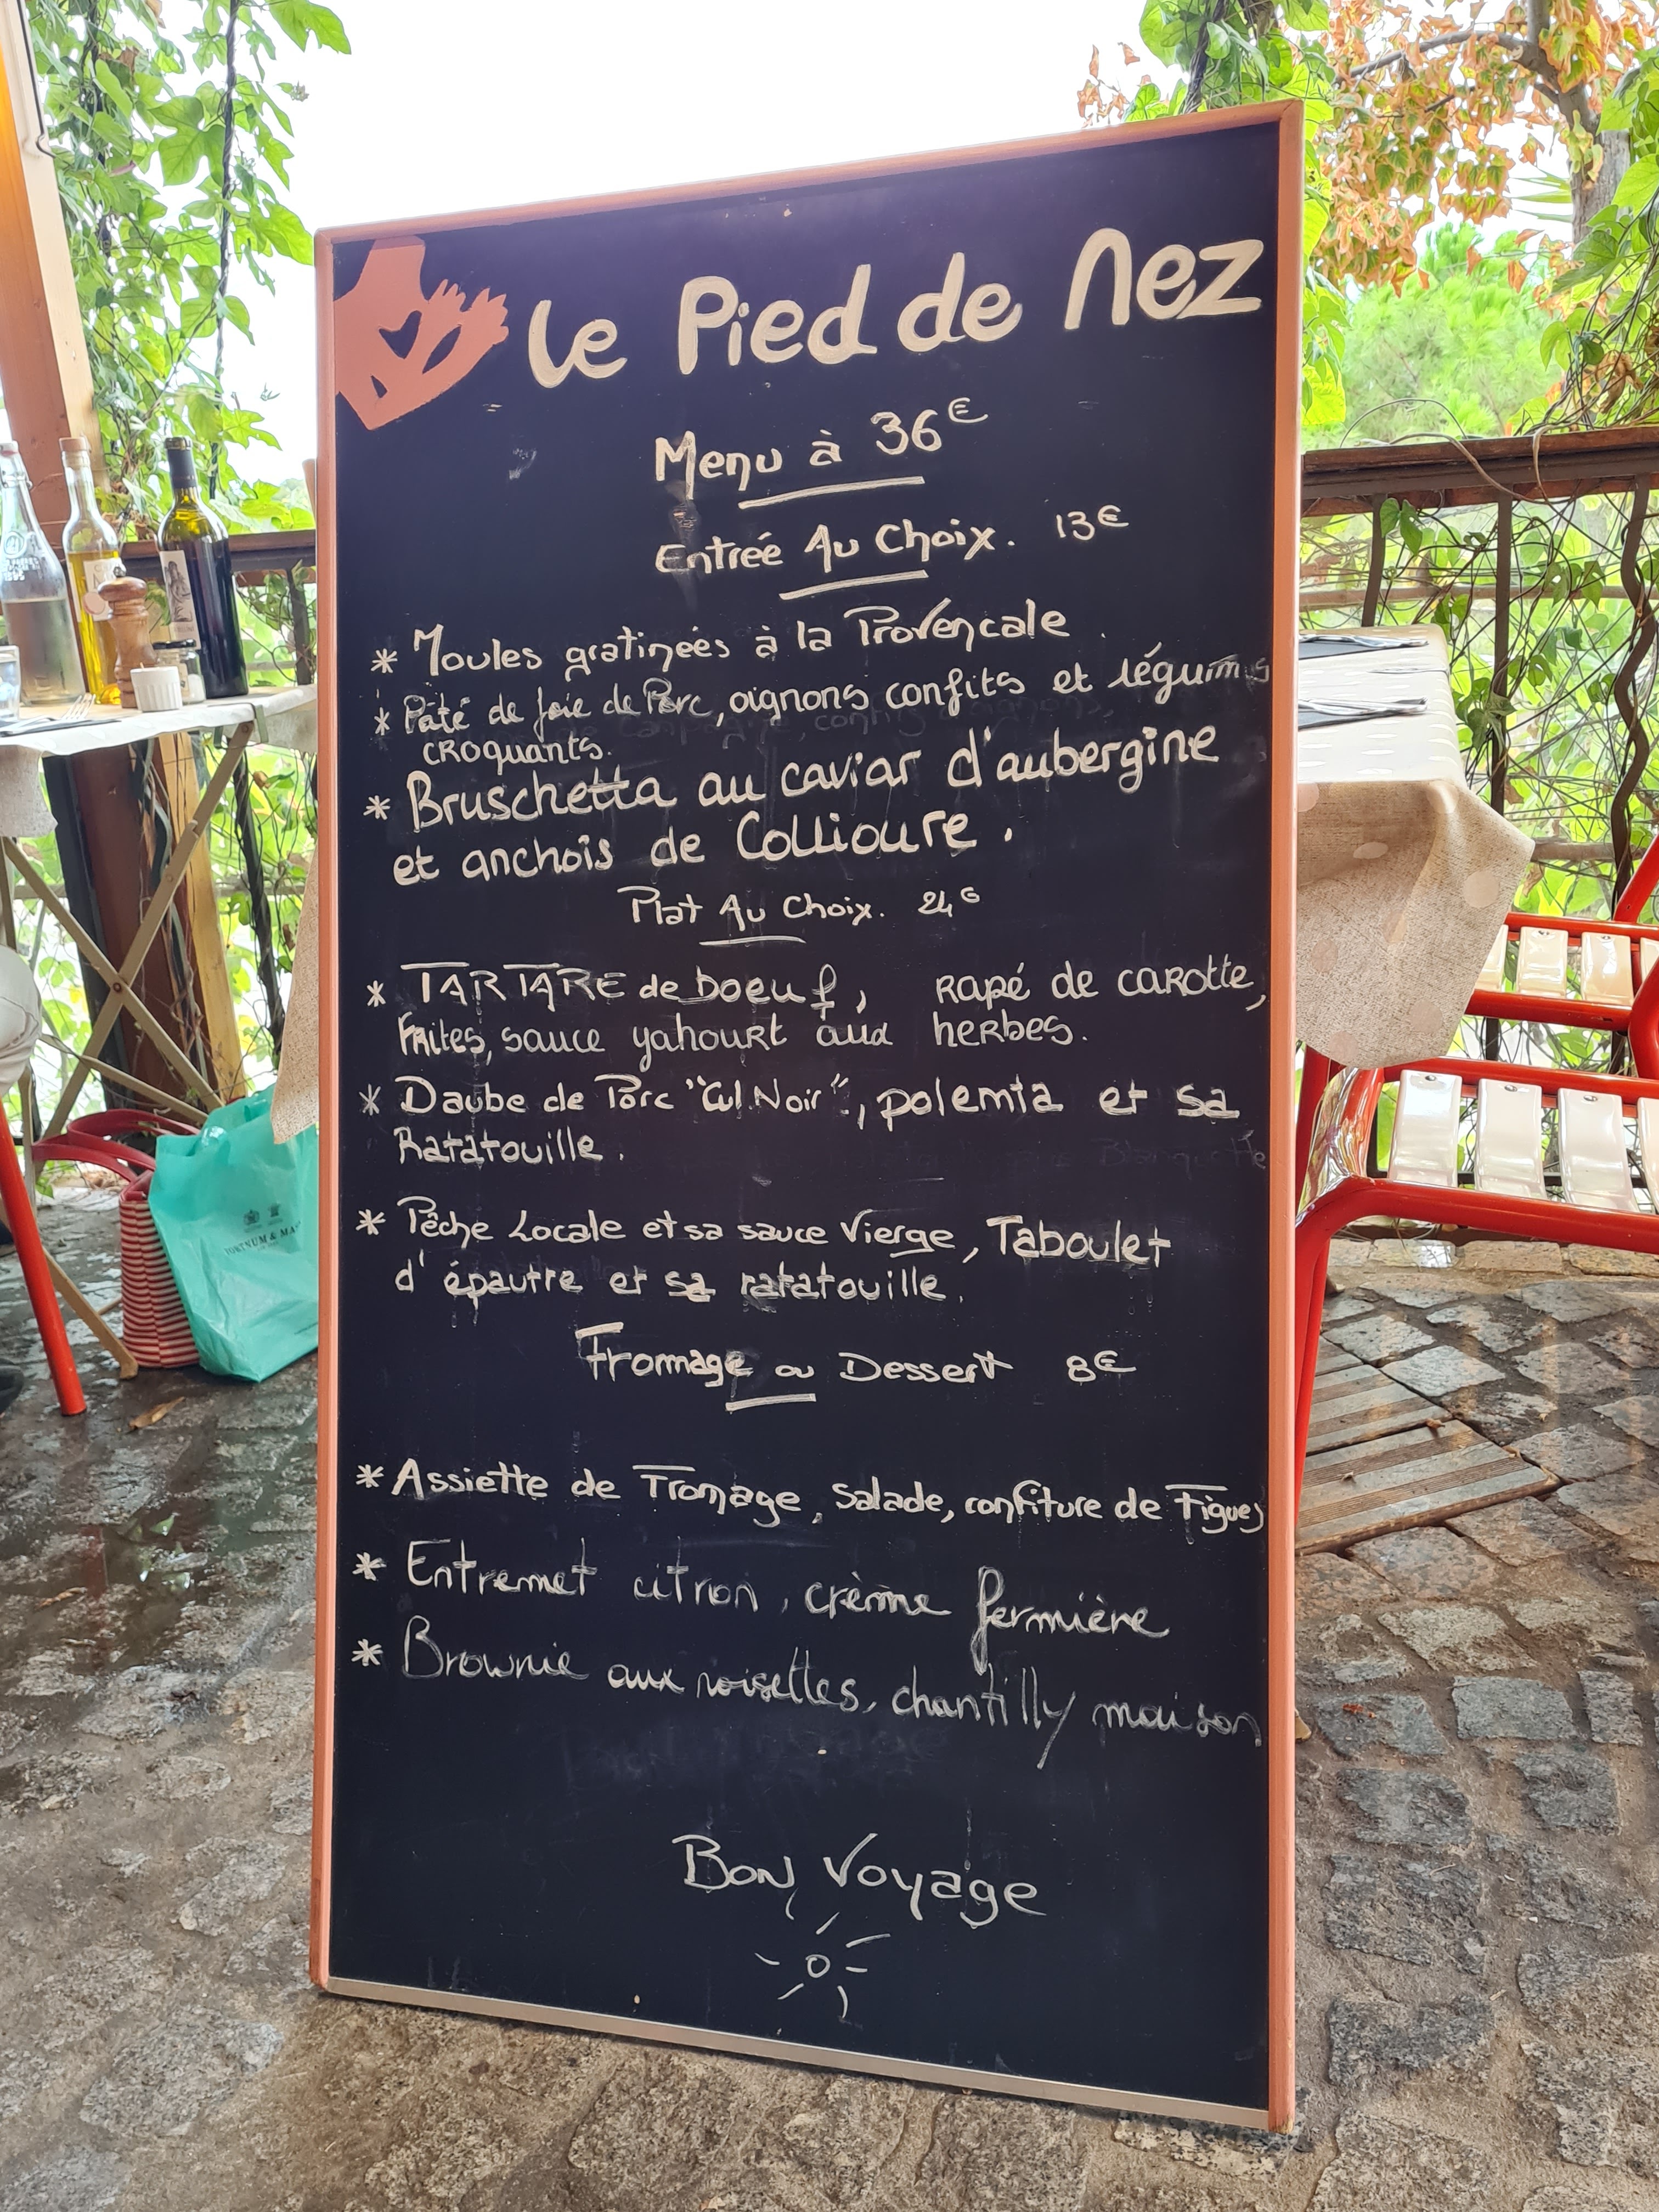 Le Pied de Nez
Menu à 36€
Entrée Au Choix. 13€
* Moules gratinées à la Provençale
* Pâté de foie de Porc, oignons confits et légumes
croquants.
* Bruschetta au caviar d'aubergine
et anchois de Collioure.
Plat Au Choix. 24€
* TARTARE de boeuf, rapé de carotte,
Frites, sauce yahourt aux herbes.
* Daube de Porc "Cul Noir", polemta et sa
Ratatouille.
* Pêche Locale et sa sauce Vierge, Taboulet
d'épautre et sa ratatouille.
Fromage ou Dessert 8€
* Assiette de Fromage, salade, confiture de Figues
* Entremet citron, crème fermière
* Brownie aux noisettes, chantilly maison
Bon Voyage
FORTNUM & MA